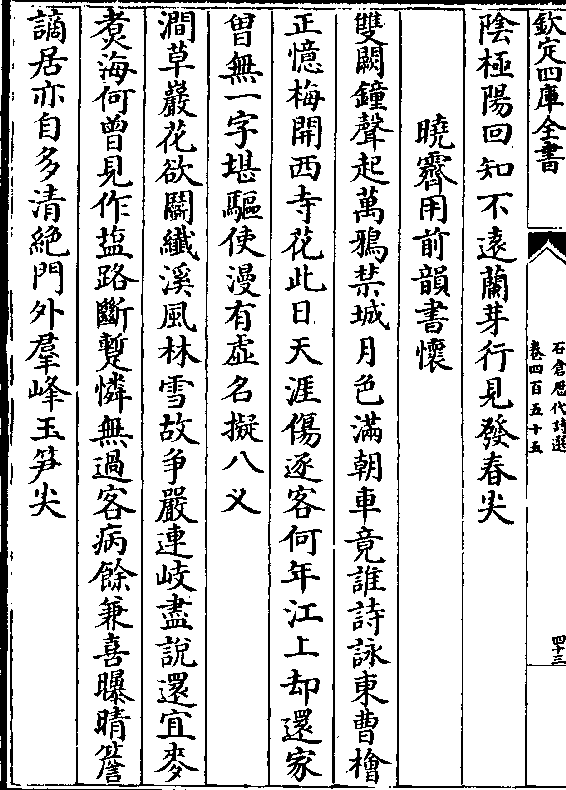 欽定四庫全書
石倉歷代詩選
卷四百五十五
四十三
陰極陽回知不遠蘭芽行見發春尖
曉霽用前韻書懷
雙闕鐘聲起萬鴉禁城月色滿朝車竟誰詩詠東曹檜
正憶梅開西寺花此日天涯傷逐客何年江上却還家
曾無一字堪驅使漫有虛名擬八乂
澗草巖花欲鬬纖溪風林雪故争嚴連岐盡說還宜麥
煑海何曾見作塩路斷暫憐無過客病餘兼喜曝晴簷
謫居亦自多清絶門外羣峰玉笋尖